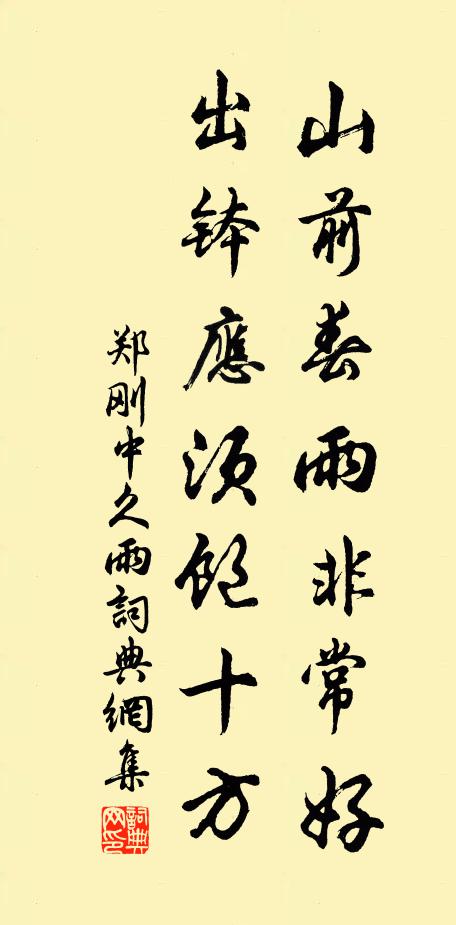 山前春雨非常好
出鉢應須飽十方
郑刚中久雨詞典網集
詞典网印